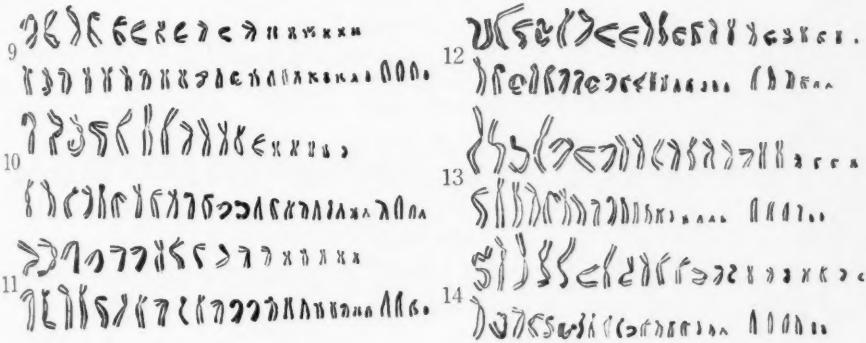 9
10
11
12
13
14